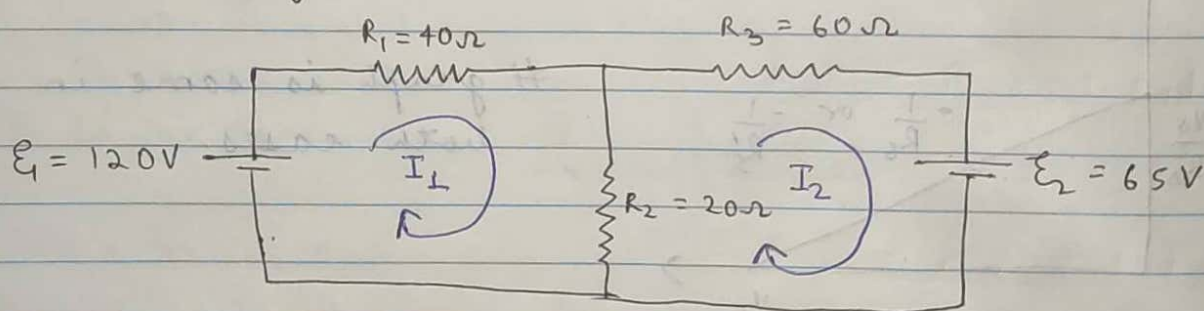 R₁ = 40Ω
R₃ = 60Ω
ℰ₁ = 120V
I₁
R₂ = 20Ω
I₂
ℰ₂ = 65V